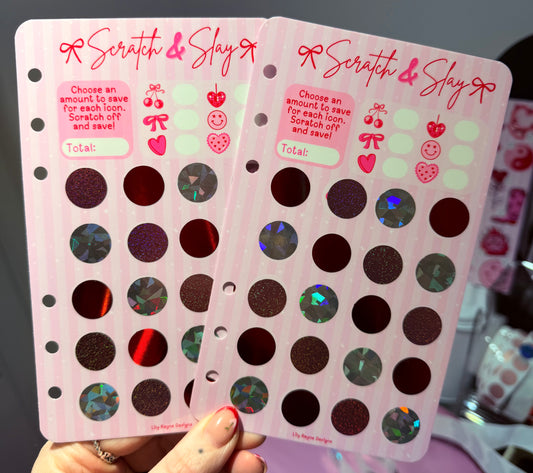 Scratch & Slay
Choose an
amount to save
for each icon.
Scratch off
and save!
Total:
Scratch & Slay
Choose an
amount to save
for each icon.
Scratch off
and save!
Total:
Lily Rayne Designs
Lily Rayne Designs